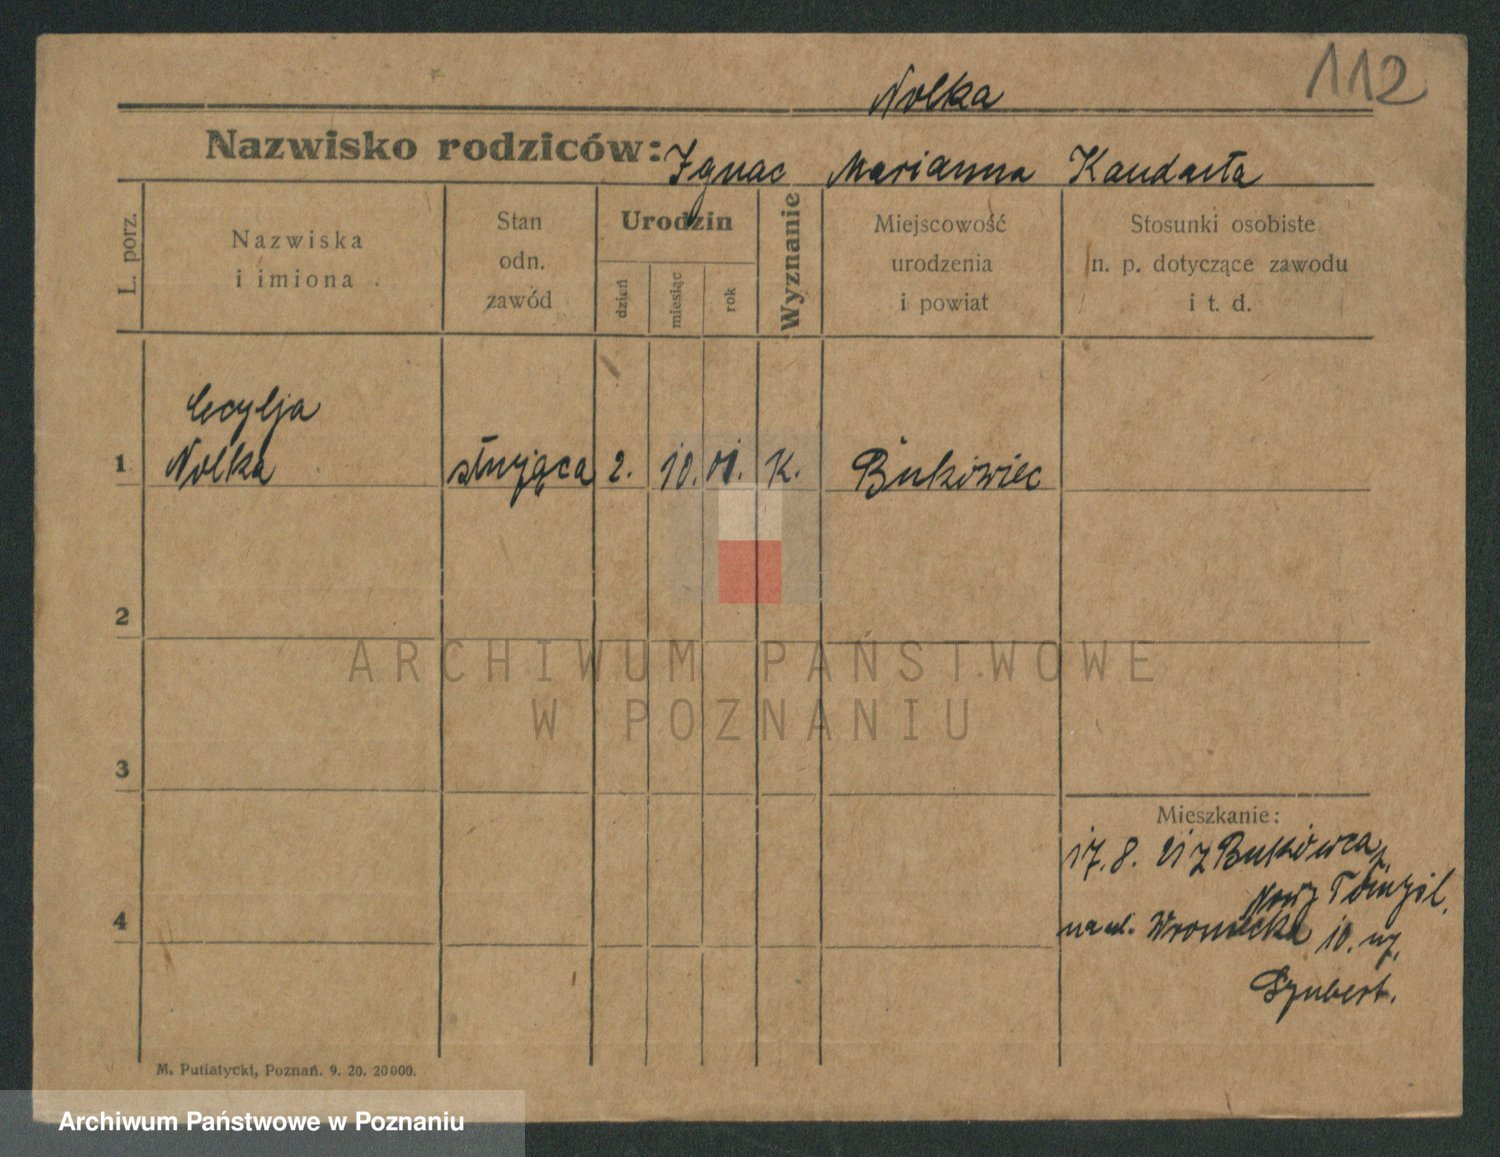 112
Nolka
Nazwisko rodziców: Ignac Marianna Kandasła
L. porz.
Nazwiska
i imiona
Stan
odn.
zawód
Urodzin
dzień
miesiąc
rok
Wyznanie
Miejscowość
urodzenia
i powiat
Stosunki osobiste
n. p. dotyczące zawodu
i t. d.
Cecylja
1 Nolka służąca 2. 10. 01. K. Bukówiec
2
3
4
Mieszkanie:
17. 8. 21 z Bukówca,
Nowy Tómyśl,
na ul. Wroniecka 10.
Szubert.
M. Putiatycki, Poznań. 9. 20. 20000.
ARCHIWUM PAŃSTWOWE
W POZNANIU
Archiwum Państwowe w Poznaniu